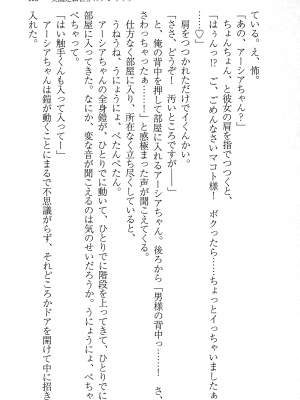 ている。え、怖。
「あの、アーシアちゃん？」
ちょんちょん、と彼女の肩を指でつつくと、
「はぁんっ!?　ご、ごめんなさいマコト様！　ボクったら……ちょっとイっちゃいましたぁ
……♡」
肩をつつかれただけでイくんかい。
「ささ、どうぞー！　汚いところですが――」
と、俺の背中を押して部屋に入れるアーシアちゃん。後ろから「男様の背中っ……！　さ、
さわっちゃったぁ……！」と感極まった声が聞こえてくる。
仕方なく部屋に入り、所在なく立ち尽くしていると、
うねうね、うにょうにょ、ぺたんぺたん。
アーシアちゃんの全身鎧が、ひとりでに動いて、ひとりでに階段を上ってきて、ひとりでに
部屋に入ってきた。なにか、変な音が聞こえるのは気のせいだろうか。うにょうにょ、ぺちゃ
「はい触手くんも入って入ってー」
アーシアちゃんは鎧が動くことにまるで不思議がらず、それどころかドアを開けて中に招き
入れた。